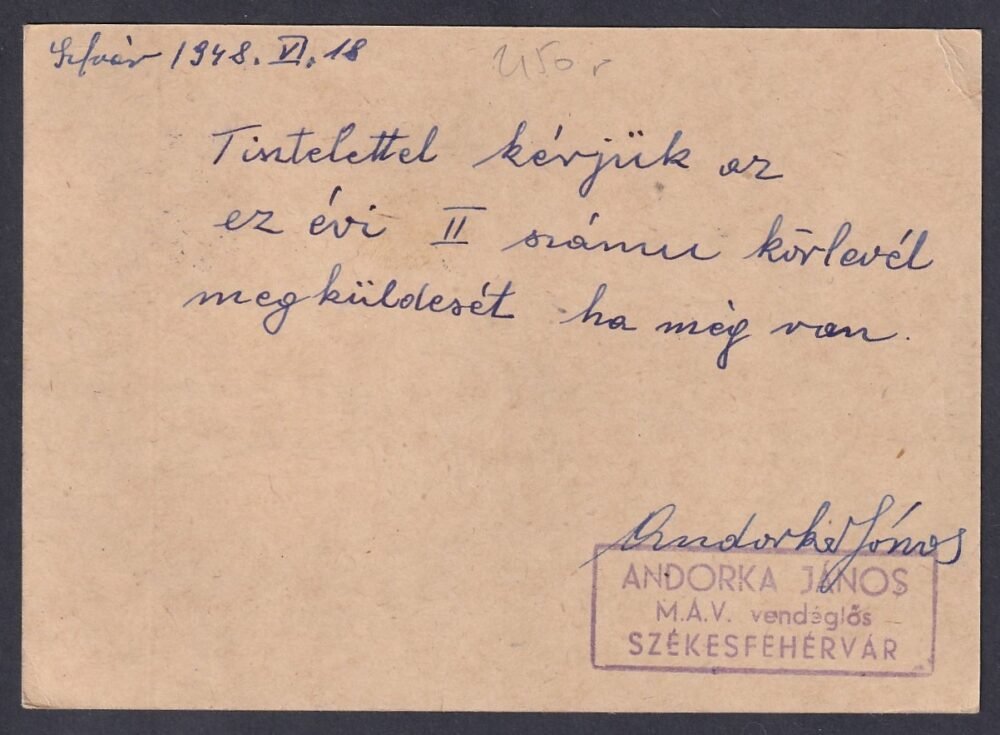 Szfvár 1948. VI. 18
Tisztelettel kérjük az
ez évi II számu körlevél
megküldését ha még van.
Andorka János
ANDORKA JÁNOS
M.Á.V. vendéglős
SZÉKESFEHÉRVÁR